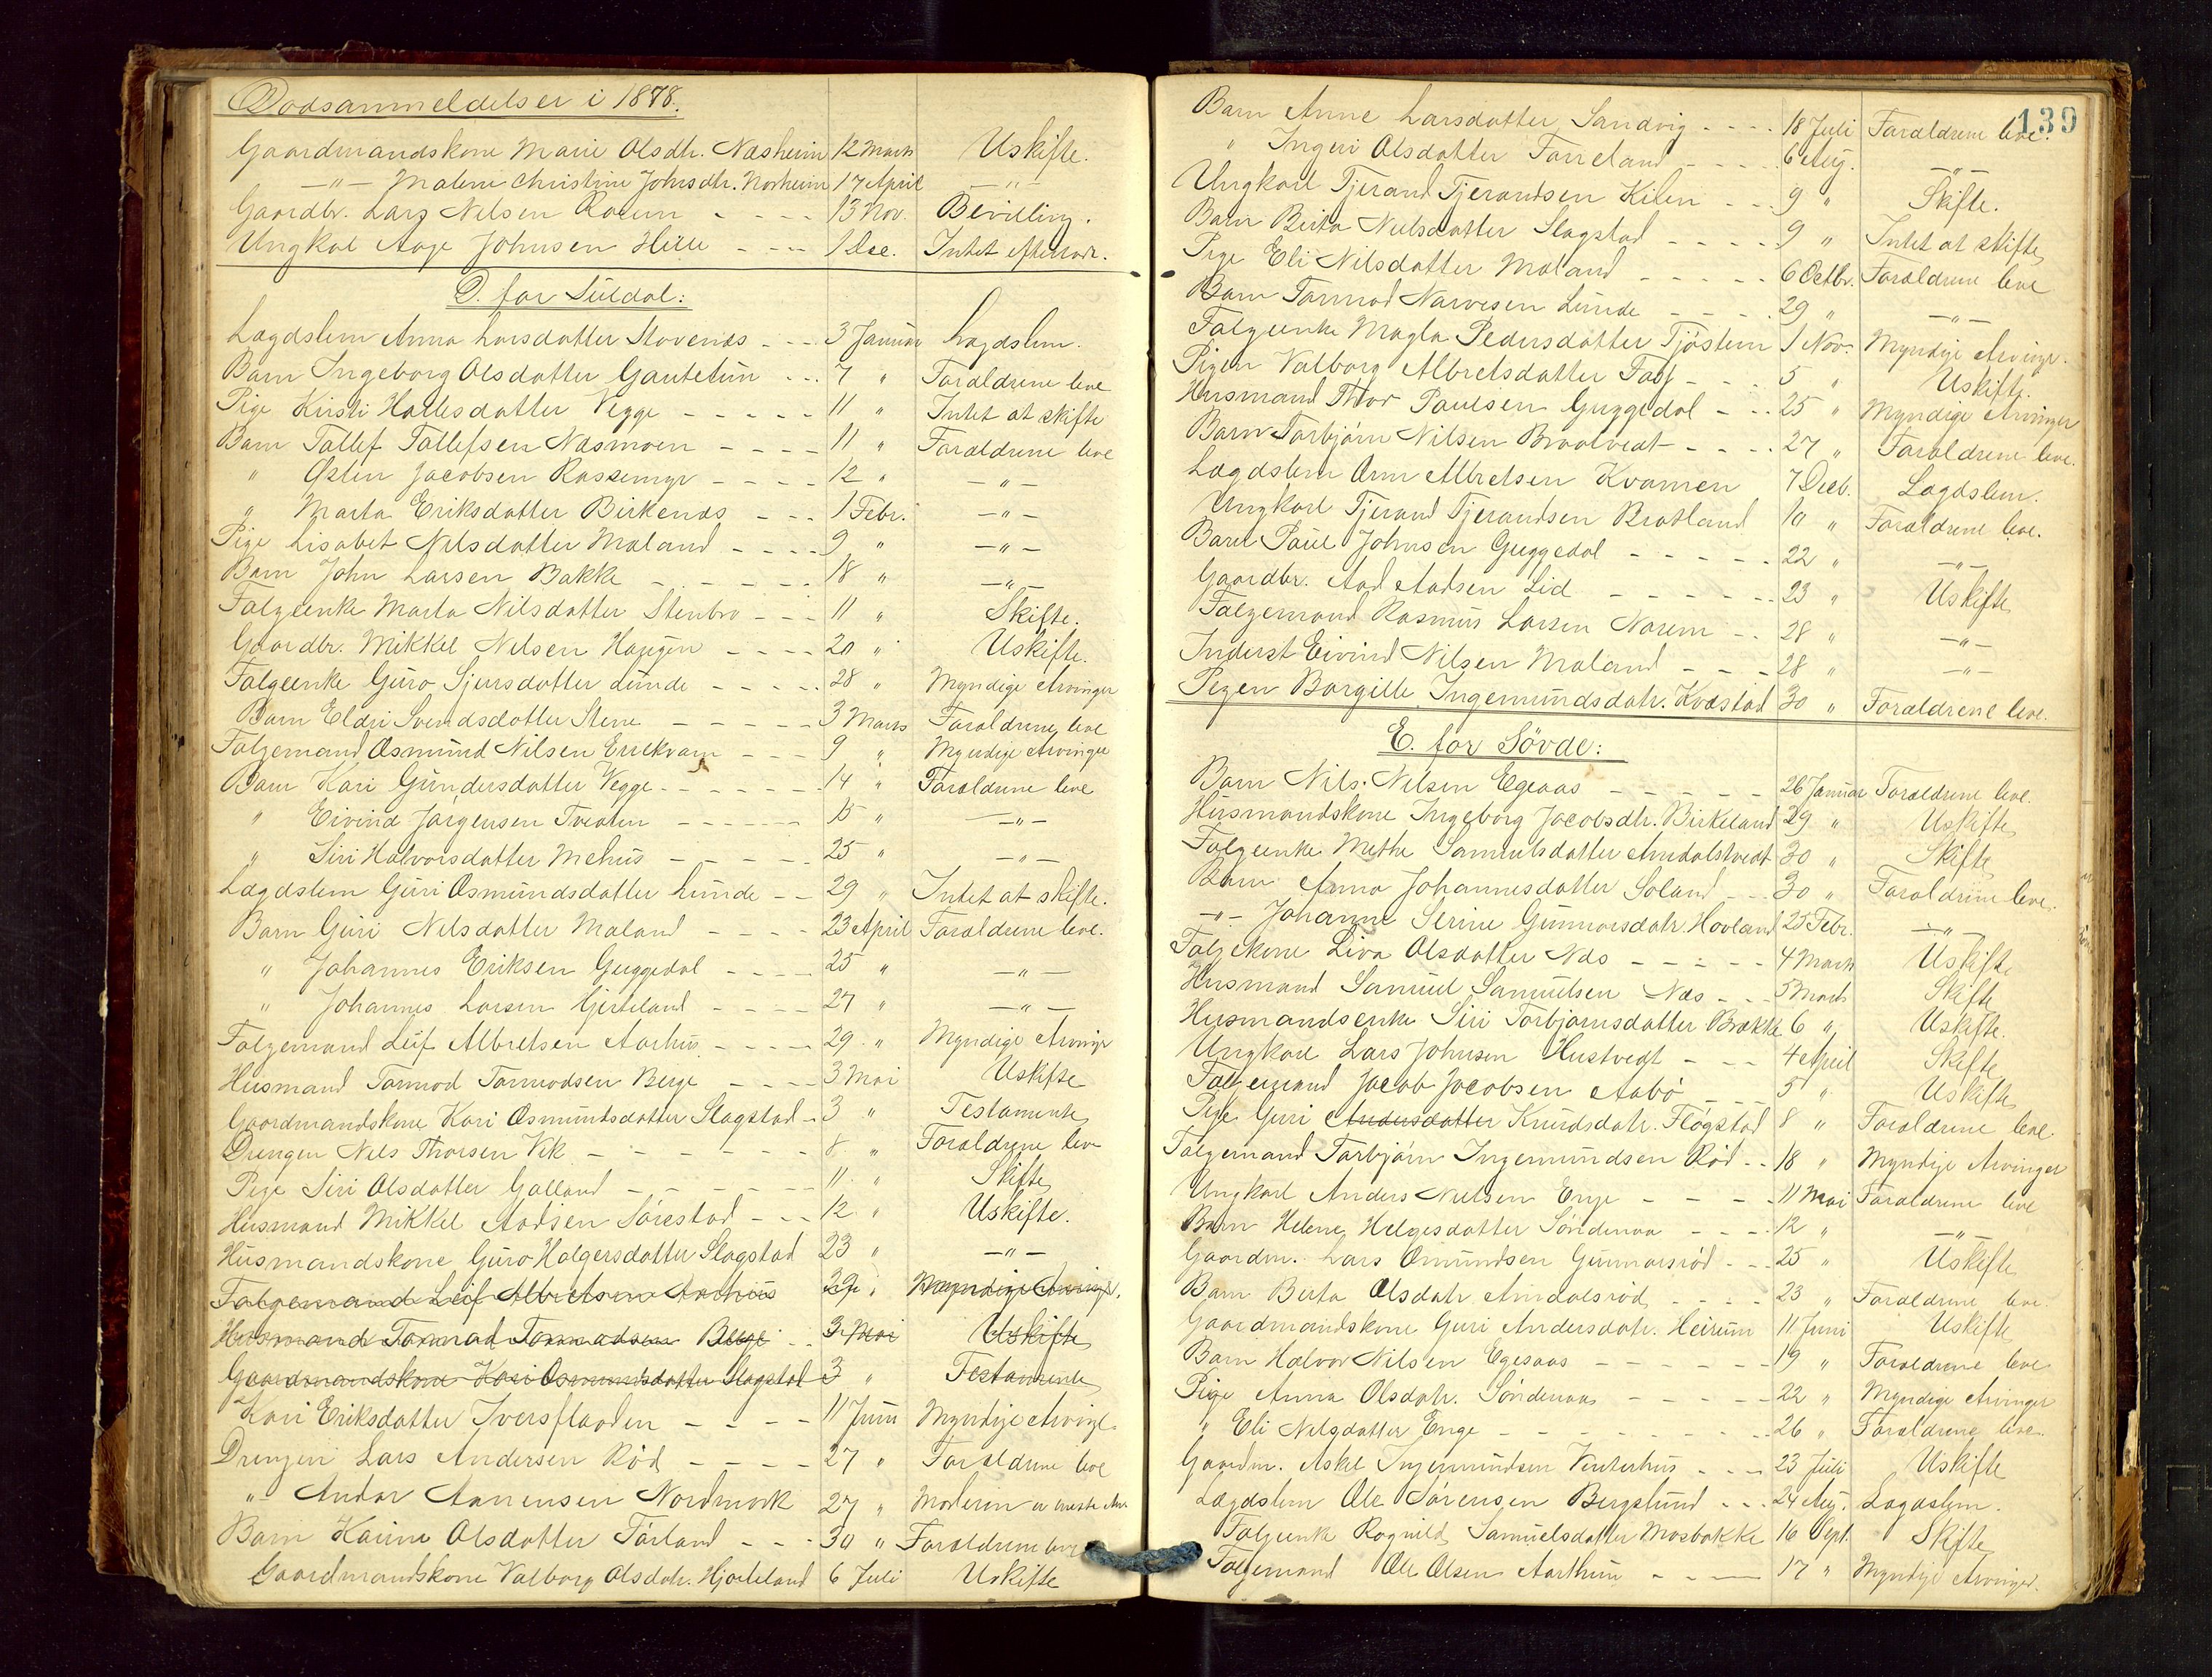 Dødsanmeldelser i 1878.
Gaardmandskone Marie Olsdtr. Næsheim 12 Marts Uskifte.
—"— Malene Christine Johnsdtr. Norheim 17 April —"—
Gaardbr. Lars Nilsen 13 Nov. Bevilling.
Ungkal Aage Johnsen Hille 1 Dec. Intet efterladt.
D. for Suldal:
Lægdslem Anna Larsdatter Stovenæs 3 Januar Lægdslem.
Barn Ingeborg Olsdatter Gautetun 7 " Forældrene leve
Pige Kirsti Hallesdatter Vegge 11 " Intet at skifte
Barn Tallef Tallefsen Næsmoen 11 " Forældrene leve
" Østen Jacobsen Rassemyr 12 " —"—
" Marta Eriksdatter Birkenæs 1 Febr. —"—
Pige Lisabet Nilsdatter Mæland 9 " —"—
Barn John Larsen Bakke 18 " —"—
Følgeenke Marta Nilsdatter Stenbro 11 " Skifte.
Gaardbr. Mikkel Nilsen Haugen 20 " Uskifte.
Følgeenke Guro Sjursdatter Lunde 28 " Myndige Arvinger
Barn Eldri Svendsdatter Stene 3 Marts Forældrene leve
Følgemand Osmund Nilsen Erickvam 9 " Myndige Arvinger
Barn Kari Gundersdatter Vegge 14 " Forældrene leve
" Eivind Jørgensen Tveaten 15 " —"—
" Siri Halvorsdatter Mehus 25 " —"—
Lægdslem Guri Osmundsdatter Lunde 29 " Intet at skifte.
Barn Guri Nilsdatter Mæland 23 April Forældrene leve.
" Johannes Eriksen Guggedal 25 " —"—
" Johannes Larsen Gjuteland 27 " —"—
Følgemand Leif Albretsen Aarhus 29 " Myndige Arvinge
Husmand Tormod Tormodsen Berge 3 Mai Uskifte
Gaardmandskone Kari Osmundsdatter Slagstad 3 " Testamente
Drengen Nils Thorsen Vik 8 " Forældrene leve
Pige Siri Olsdatter Galland 11 " Skifte
Husmand Mikkel Aadsen Sørestad 12 " Uskifte.
Husmandskone Guro Holgersdatter Slagstad 23 " —"—
Følgemand Leif Albretsen Aarhus 29 " Myndige Arvinge.
Husmand Tormod Tormodsen Berge 3 Mai Uskifte
Gaardmandskone Kari Osmundsdatter Slagstad 3 " Testamente
Kari Eriksdatter Iversflaaten 11 Juni Myndige Arvinge.
Drengen Lars Andersen Rød 27 " Forældrene leve
" Andor Aanensen Nordmork 27 " Moderen er eneste Arv
Barn Karine Olsdatter Førland 30 " Forældrene leve
Gaardmandskone Valborg Olsdatr. Hjorteland 6 Juli Uskifte
139
Barn Anne Larsdatter Sandvig 18 Juli Forældrene leve.
" Ingeri Olsdatter Førreland 6 Aug. —"—
Ungkarl Tjerand Tjerandsen Kilen 9 " Skifte.
Barn Berta Nielsdatter Slagstad 9 " Intet at skifte
Pige Eli Nilsdatter Mæland 6 Octbr. Forældrene leve
Barn Tormod Narvesen Lunde 29 " —"—
Følgeenke Magla Pedersdatter Tjøstem 1 Nov. Myndige Arvinge.
Pigen Valborg Albretsdatter 5 " Uskifte.
Husmand Thor Paulsen Guggedal 25 " Myndige Arvinger
Barn Torbjørn Nilsen Braatveat 27 " Forældrene leve.
Lægdslem Orm Albretsen Kvamen 7 Decb. Lægdslem.
Ungkarl Tjerand Tjerandsen Bratland 10 " Forældrene leve.
Barn Paul Johnsen Guggedal 22 " —"—
Gaardbr. Aad Aadsen Lid 23 " Uskifte
Følgemand Rasmus Larsen Norem 28 " —"—
Inderst Eivind Nilsen Mæland 28 " —"—
Pigen Borgille Ingemundsdatr. Kvæstad 30 " Forældrene leve.
E. for Søvde:
Barn Nils Nilsen Egeaas 26 Januar Forældrene leve.
Husmandskone Ingeborg Jacobsdtr. Birkeland 29 " Uskifte
Følgeenke Methe Samuelsdatter Amdalstvedt 30 " Skifte
Barn Anna Johannesdatter Søland 30 " Forældrene leve.
—"— Johanne Serine Gunnarsdatr. Hovland 25 Febr. —"—
Følgekone Liva Olsdatter Næs 4 Marts Uskifte
Husmand Samuel Samuelsen Næs 5 Marts Skifte
Husmandsenke Siri Torbjørnsdatter Brække 6 " Uskifte.
Ungkarl Lars Johnsen Hustvedt 4 April Skifte
Følgemand Jacob Jacobsen Aabø 5 " Uskifte
Pige Guri Andersdatter Knudsdatr. Fløgstad 8 " Forældrene leve.
Følgemand Torbjørn Ingemundsen Rød 18 " Myndige Arvinger
Ungkarl Anders Nielsen Enge 11 Mai Forældrene leve
Barn Helene Helgesdatter Søndenaa 12 " —"—
Gaardm. Lars Omundsen Gunnarsrød 25 " Uskifte
Barn Berta Olsdatr. Amdalsrød 23 " Forældrene leve.
Gaardmandskone Guri Andersdatr. Heirum 11 Juni Uskifte
Barn Halvor Nilsen Egesaas 19 " Forældrene leve
Pige Anna Olsdatr. Søndenaa 22 " Myndige Arvinger
" Eli Nilsdatter Enge 26 " Forældrene leve.
Gaardm. Askel Ingemundsen Vinterhus 23 Juli Uskifte
Lægdslem Ole Sørensen Bergslund 24 Aug. Lægdslem.
Følgeenke Ragnild Samuelsdatter Mosbakke 16 Sept. Skifte
Følgemand Ole Olsen Aarthun 17 " Myndige Arvinger.